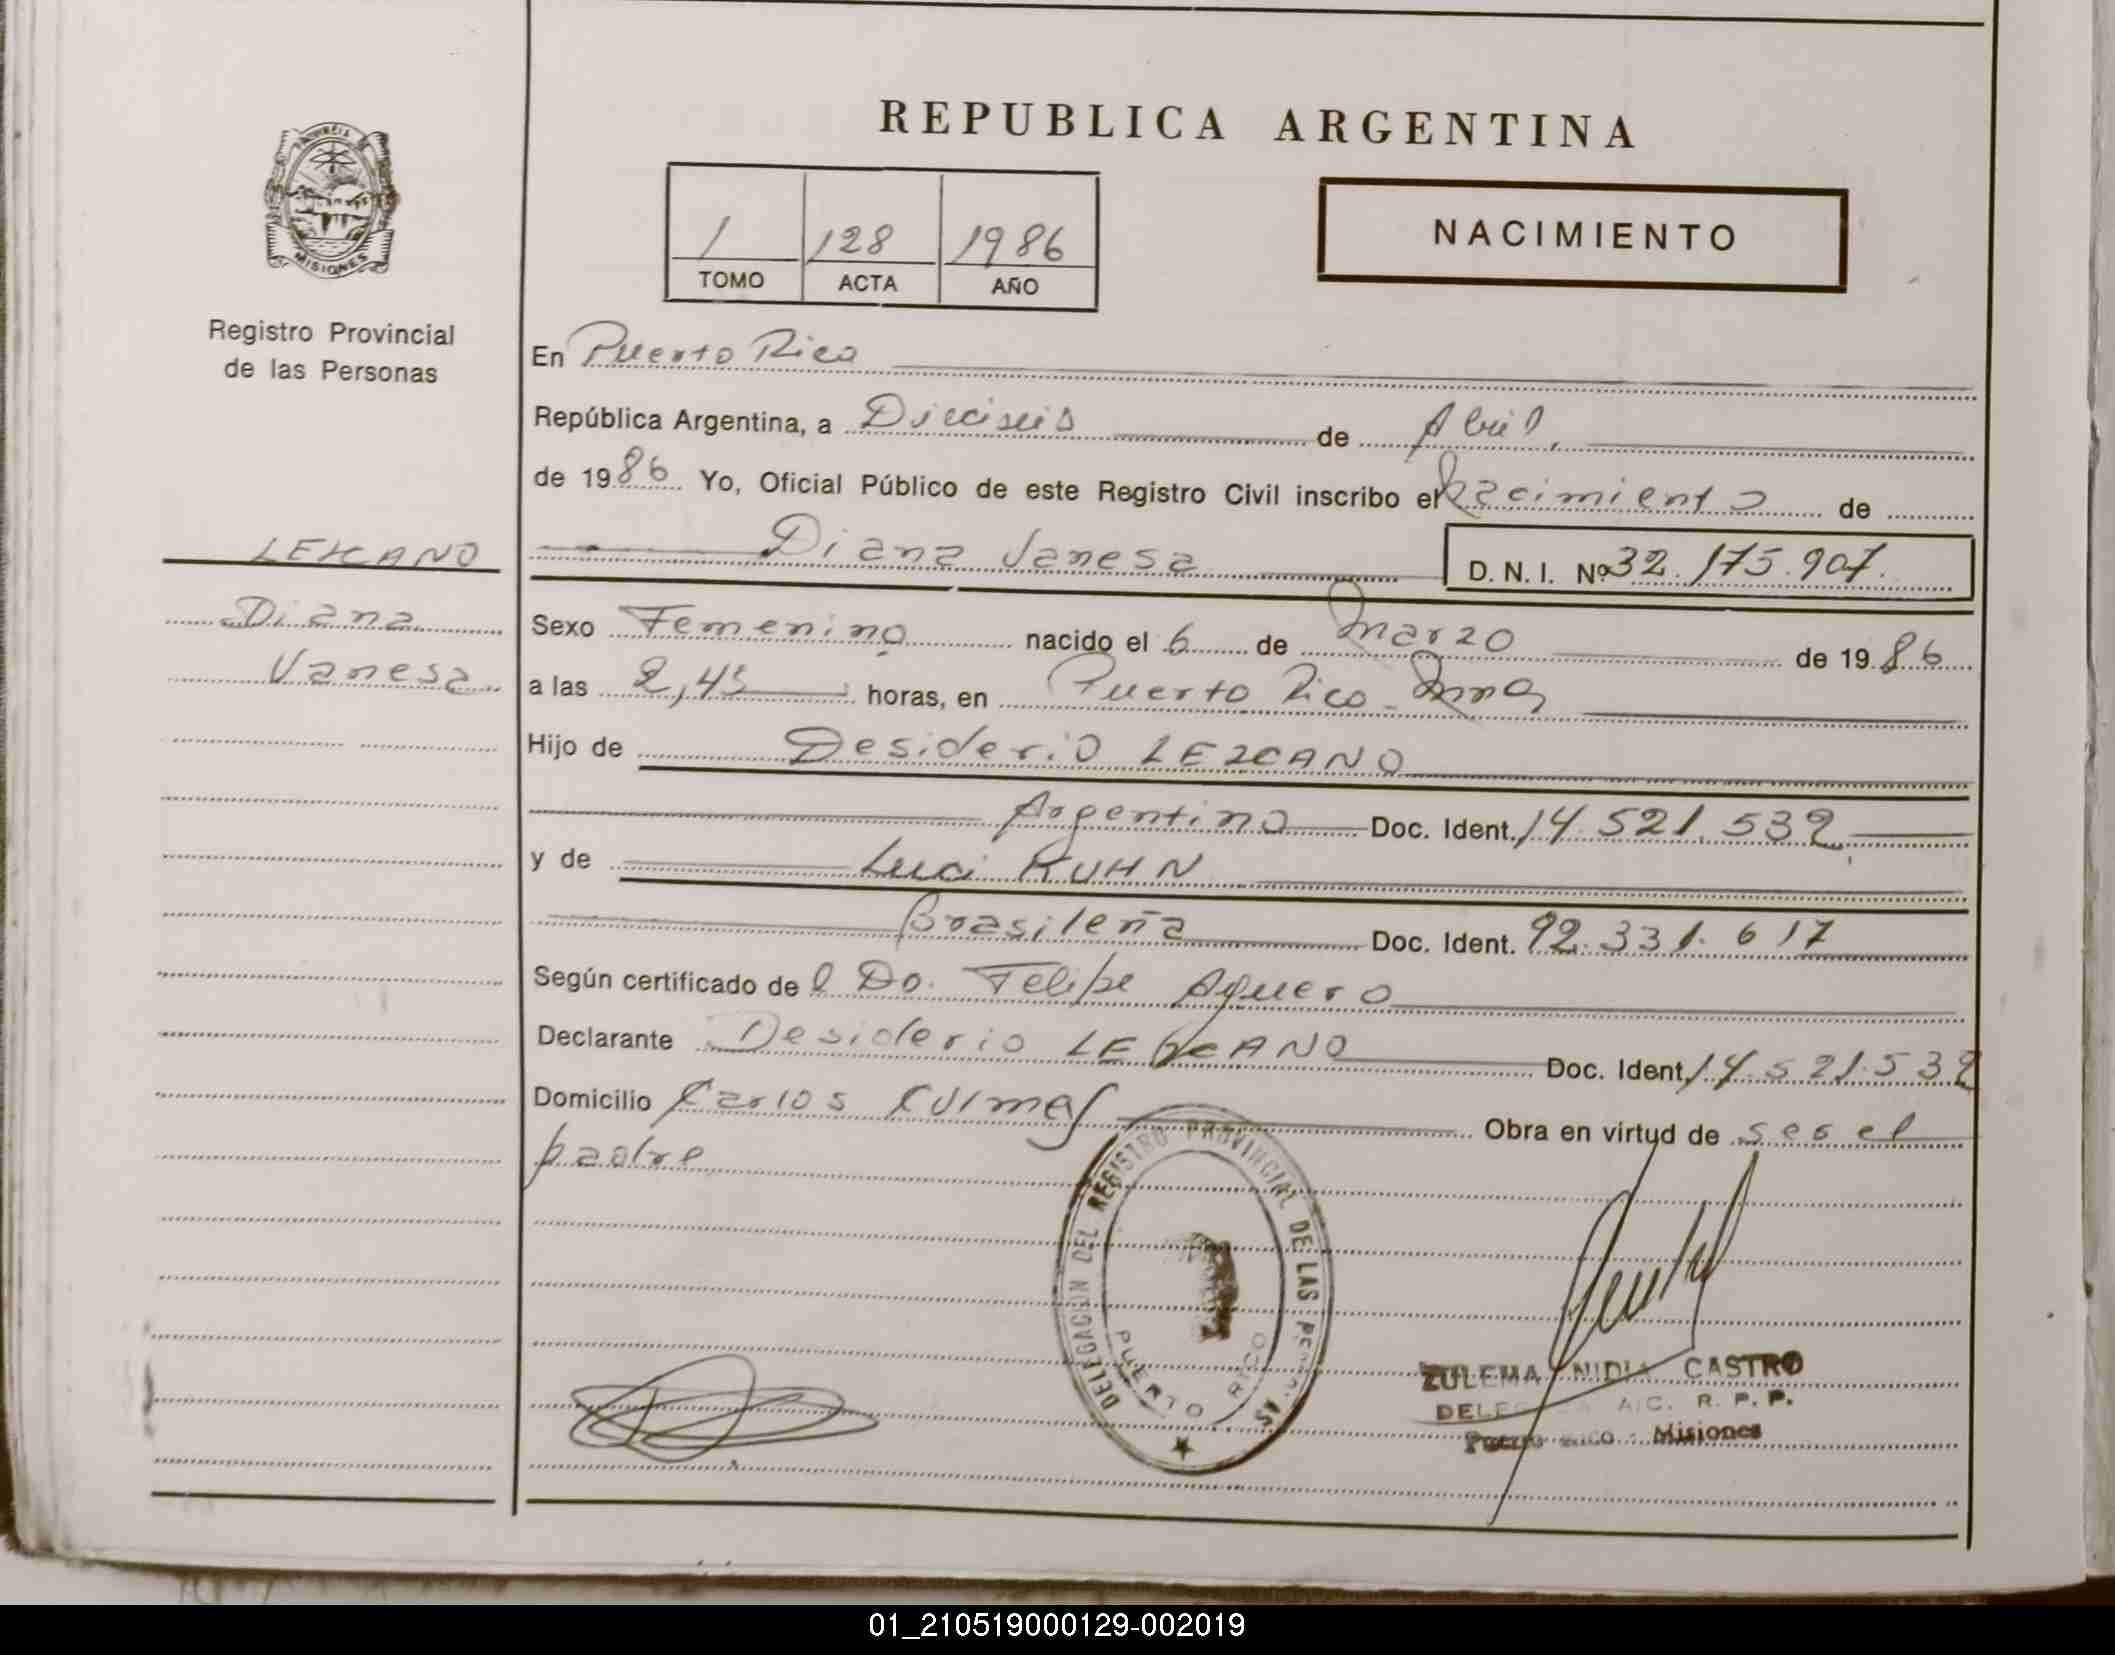 REPUBLICA ARGENTINA
PROVINCIA
MISIONES
Registro Provincial
de las Personas
1 128 1986
TOMO ACTA AÑO
NACIMIENTO
En Puerto Rico
República Argentina, a Dieciseis de Abril,
de 1986 Yo, Oficial Público de este Registro Civil inscribo el nacimiento de
LEZCANO
Diana Vanesa D. N. I. Nº 32.175.907.
Diana
Vanesa
Sexo Femenino nacido el 6 de Marzo de 1986
a las 2,45 horas, en Puerto Rico -
Hijo de Desiderio LEZCANO
Argentino Doc. Ident. 14.521.532
y de Luci KUHN
Brasileña Doc. Ident. 92.331.617
Según certificado de l Do. Felipe Aguero
Declarante Desiderio LEZCANO Doc. Ident. 14.521.532
Domicilio Carlos Culmey Obra en virtud de ses el
padre
DELEGACION DEL REGISTRO PROVINCIAL DE LAS PERSONAS
PUERTO RICO
ZULEMA NIDIA CASTRO
A/C. R. P. P.
Puerto Rico - Misiones
01_210519000129-002019